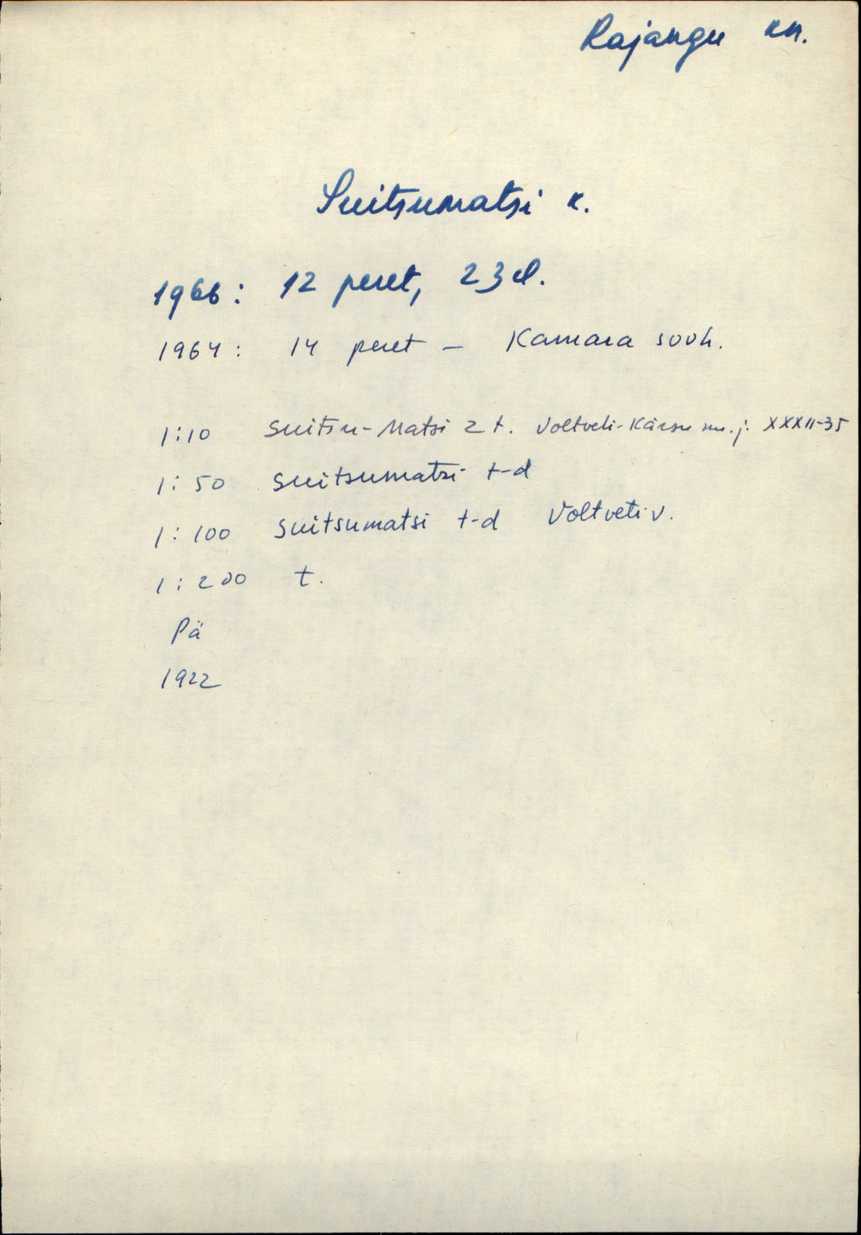 Rajangu kn.
Suitsumatsi k.
1966: 12 peret, 23 el.
1964: 14 peret – Kamara sovh.
1:10 Suitsu-Matsi 2 t. Voltveti-Kärsu j. XXXII-35
1:50 Suitsumatsi t-d
1:100 Suitsumatsi t-d Voltveti v.
1:200 t.
Pä
1922